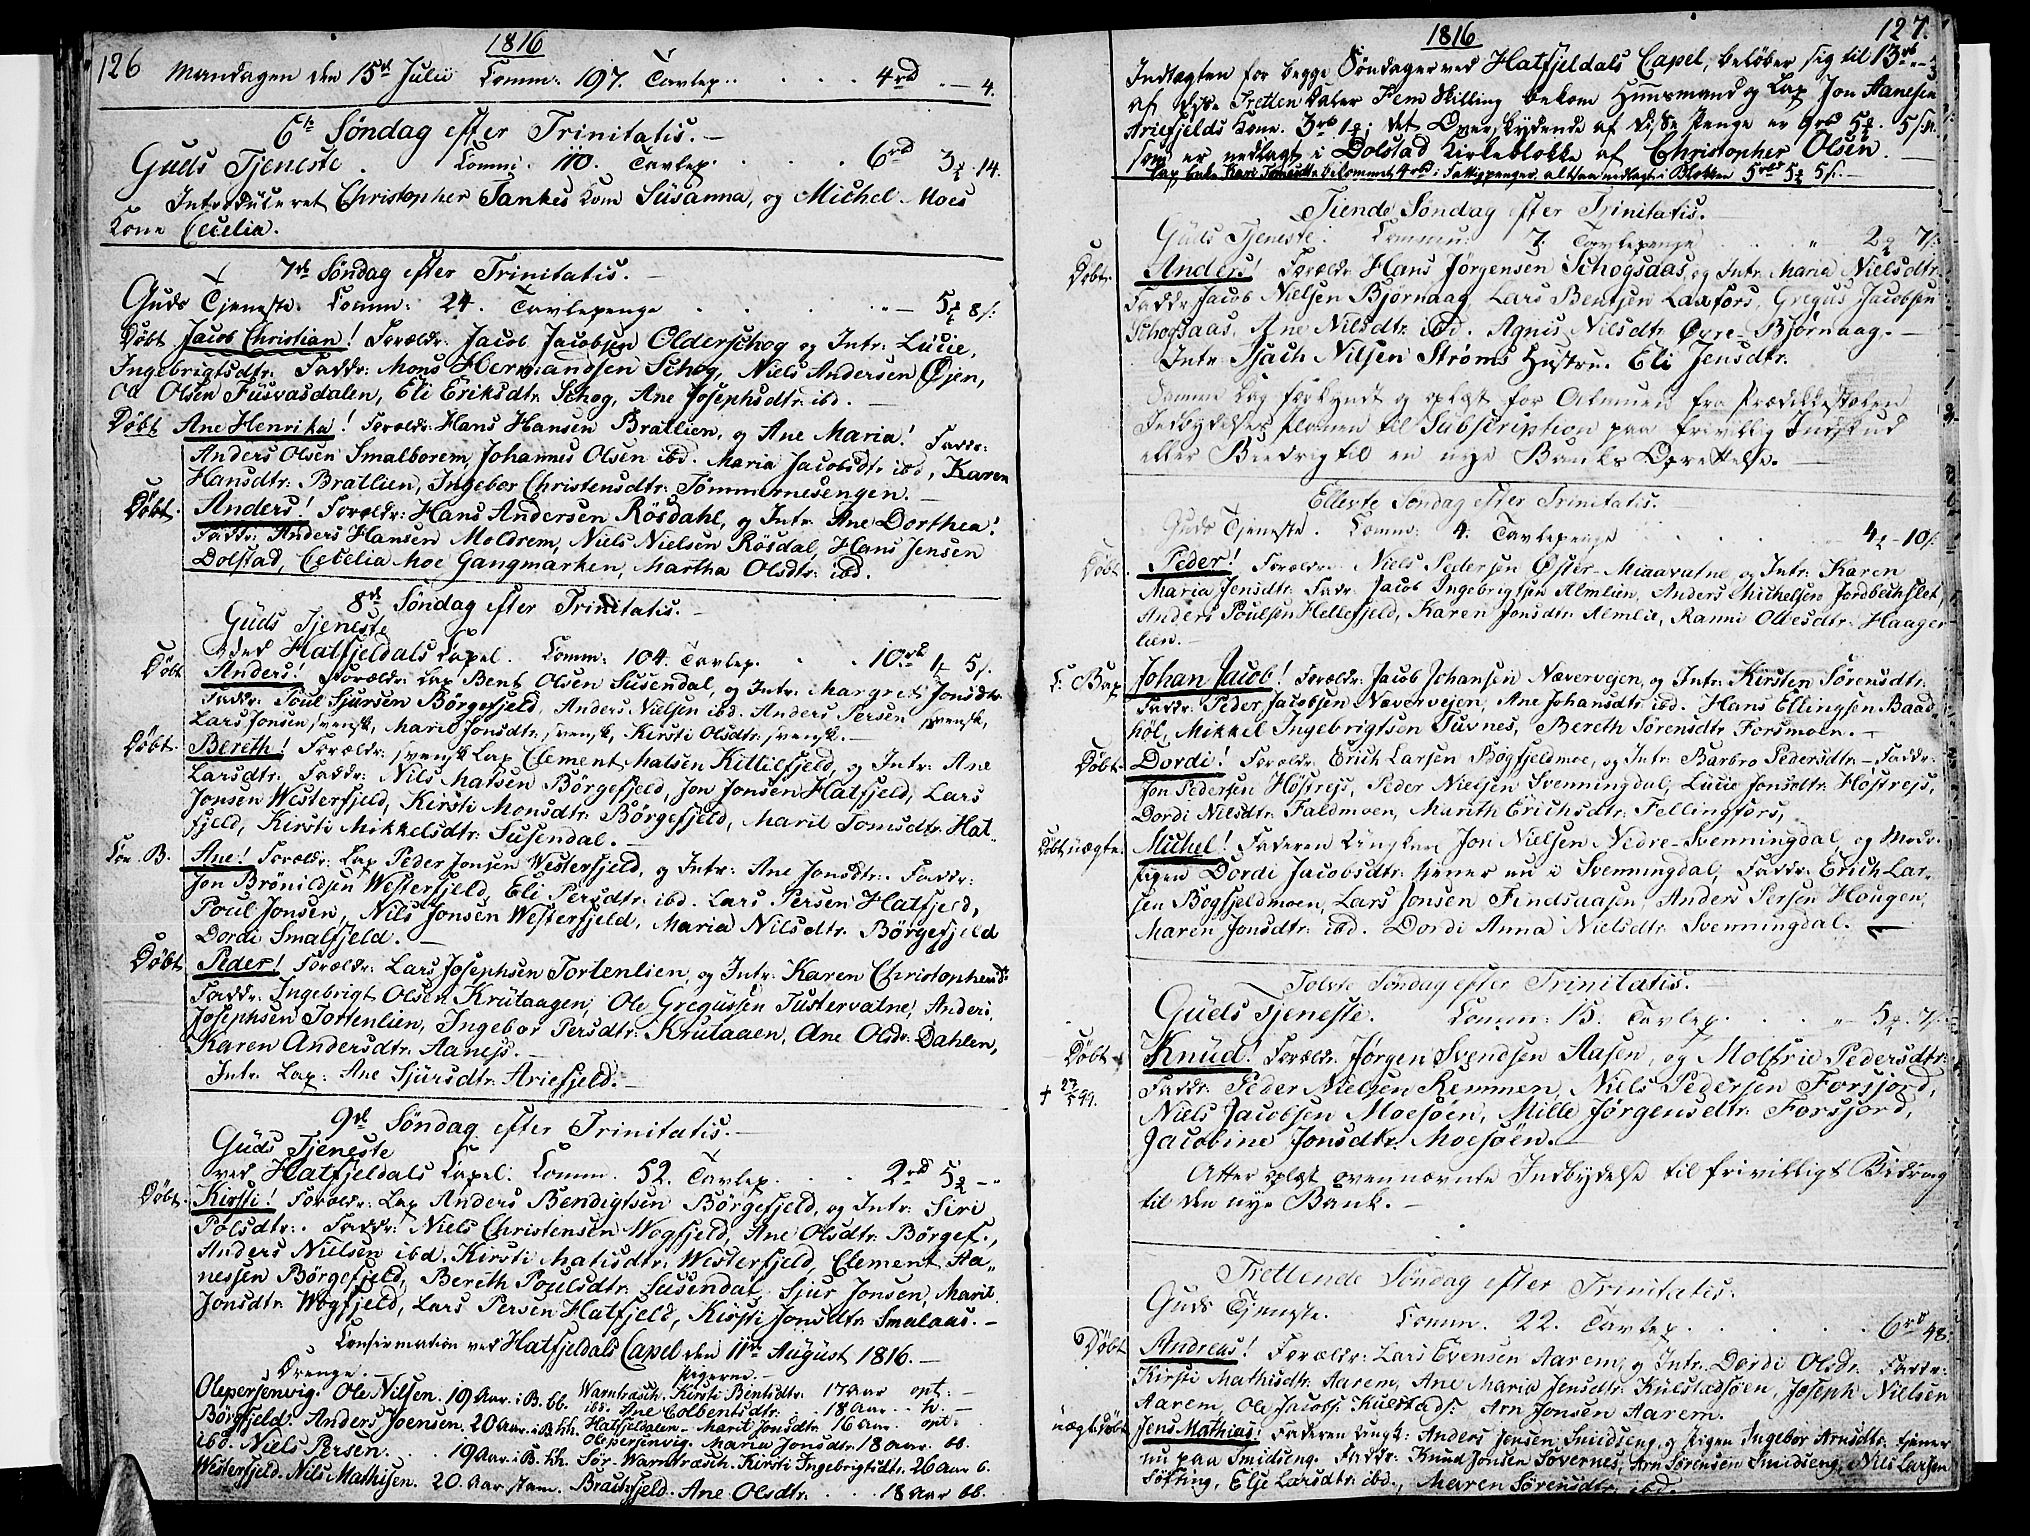 126
1816
Mandagen den 15de Julii Comm: 197. Tavlep. 4rd - 4.
6te Søndag efter Trinitatis.
Guds Tjeneste. Comni. 110. Tavlep. 6rd 3 14.
Introduceret Christopher Tankes Kone Susanna, og Michel Moes
Kone Cecelia.
7de Søndag efter Trinitatis.
Guds Tjeneste. Comm: 24. Tavlepenge 5 8/:
Døbt Jacob Christian! Forældr: Jacob Jacobsen Olderschog og Intr: Lucie,
Ingebrigtsdtr: Faddr: Mons Hermandsen Schog, Niels Andersen Øjen,
Ole Olsen Fusvasdalen, Eli Eriksdtr: Schog, Ane Josephsdtr: ibd.
Døbt Ane Henrika! Forældr: Hans Hansen Bratlien, og Ane Maria! Faddr:
Anders Olsen Smalborem, Johannes Olsen ibd. Maria Jacobsdtr ibd, Karen
Hansdtr: Bratlien, Ingebor Christensdtr: Tömmernesengen.
Døbt. Anders! Forældr: Hans Andersen Rösdahl, og Intr: Ane Dorthea!
Faddr: Anders Hansen Moldrem, Niels Nielsen Rösdal, Hans Jensen
Dolstad, Cecelia Moe Gangmarken, Martha Olsdtr: ibd.
8de Søndag efter Trinitatis.
Guds Tjeneste
ved Hatfjeldals Capel. Comm: 104. Tavlep. 10rd 1 5/.
Døbt Anders! Forældr: Lap Bent Olsen Susendal, og Intr: Margret Jonsdtr
Faddr: Poul Sjursen Börgefjeld, Anders Nielsen ibd. Anders Persen svensk,
Lars Jonsen svensk, Marit Jonsdtr svensk, Kirsti Olsdtr: svensk.
Døbt. Bereth! Forældr: svensk Lap Clement Matsen Kittilfjeld, og Intr: Ane
Larsdtr: Faddr: Nils Matsen Börgefjeld, Jon Jonsen Hatfjeld, Lars
Jonsen Westerfjeld, Kirsti Monsdtr: Börgefjeld, Marit Tomsdtr: Hat-
fjeld, Kirsti Mikkelsdtr: Susendal.
Con. B. Ane! Forældr: Lap Peder Jonsen Westerfjeld, og Intr: Ane Jonsdtr. Faddr:
Jon Brönildsen Westerfjeld, Eli Persdtr: ibd. Lars Persen Hatfjeld,
Poul Jonsen, Nils Jonsen Westerfjeld, Maria Nilsdtr: Börgefjeld
Dordi Smalfjeld.
Døbt Peder! Forældr: Lars Josephsen Tortenlien, og Intr: Karen Christophersdtr
Faddr: Ingebrigt Olsen Krutaagen, Ole Gregussen Tustervatne, Anders
Josephsen Tortenlien, Ingebor Persdtr: Krutaaen, Ane Olsdr. Dahlen,
Karen Andersdtr: Aaness.
Intr. Lap: Ane Sjursdtr: Ariefjeld.
9de Søndag efter Trinitatis.
Guds Tjeneste
ved Hatfjeldals Capel: Comm. 52. Tavlep. 2rd 5
Døbt. Kirsti! Forældr: Lap Anders Bendigtsen Börgefjeld, og Intr: Siri
Polsdtr: Faddr: Niels Christensen Wogfjeld, Ane Olsdtr: Börgef:,
Anders Nielsen ibd. Kirsti Matisdtr: Westerfjeld, Clement Aa-
nessen Börgefjeld, Bereth Poulsdtr: Susendal, Sjur Jonsen, Marit
Jonsdtr: Wogfjeld, Lars Persen Hatfjeld, Kirsti Jonsdtr Smalaas.
Confirmation ved Hatfjeldals Capel den 11te August 1816.
Drenge. Pigerne.
Olepersenvig. Ole Nilsen. 19 Aar i B. bb. Warntræsch. Kirsti Bentsdtr. 17 Aar opt:
Börgfjeld. Anders Joensen. 20 Aar i B. hh. ibd. Ane Colbentsdtr: 18 Aar h.
ibd. Niels Persen. 19 Aar i B. hh. Hatfjeldalen. Marit Jonsdtr. 16 Aar opt:
Westerfjeld. Nils Mathisen. 20 Aar stam. Olepersenvig. Maria Jonsdtr. 18 Aar bb.
Sör-Warntræsch. Kirsti Ingebrigtsdtr. 26 Aar b.
Brachfjeld. Ane Olsdtr. 18 Aar bb.
127.
1816
Indtægten for begge Søndager ved Hatfjeldals Capel, beløber sig til 13rd
af disse Tretten Daler Fem Skilling bekom Huusmand og Lap Jon Aanesen
Ariefjelds Kone. 3rd 1; det Overskydende af disse Penge er 9rd 5 5/:
som er nedlagt i Dolstad Kirkeblokke af Christopher Olsen.
Lap Enke Kari bekommet 4rd i Fattigpenger. altsaa nedlagt i Blokken 5rd 5 5/.
Tiende Søndag efter Trinitatis.
Guds Tjeneste. Commun: 7. Tavlepenge 2 7/:
Døbt. Anders! Forældr: Hans Jørgensen Schogsaas, og Intr: Maria Nielsdtr
Faddr. Jacob Nielsen Bjørnaag, Lars Bentsen Laxfors, Gregus Jacobsen
Schogsaas, Ane Nilsdtr. ibd. Agnis Nilsdtr Øvre-Bjørnaag.
Intr. Isach Nilsen Ströms Hustru. Eli Jensdtr.
Samme Dag forkyndt og oplæst for Almuen fra Prædikestolen
Indbydelses Planen til Subscription paa frivillig Indskud
eller Biedrag til en nye Banks Oprettelse.
Ellevte Søndag efter Trinitatis.
Guds Tjeneste. Comm: 4. Tavlepenge 4 10/:
Døbt. Peder! Forældre: Niels Pedersen Øster-Miaavatne og Intr: Karen
Maria Jensdtr: Fadr: Jacob Ingebrigtsen Almlien, Anders Michelsen Jordbechslet,
Anders Poulsen Hellefjeld, Karen Jonsdtr Almlie, Ranni Ollesdtr: Haager-
lien.
C: Bap Johan Jacob! Forældr: Jacob Johansen Nævervejen, og Intr: Kirsten Sørensdtr:
Faddr. Peder Jacobsen Nævervejen, Ane Johansdtr ibd. Hans Ellingsen Baad-
høl, Mikkel Ingebrigtsen Tuvnes, Bereth Sørensdtr Forsmoen.
Døbt. Dordi! Forældr: Erich Larsen Bogfjeldmoe, og Intr: Barbro Pedersdtr - Faddr:
Jon Pedersen Høstrejs, Peder Nielsen Svenningdal, Lucie Jonsdtr: Høstrejs,
Dordi Nilsdtr: Faldmoen, Marith Erichsdtr: Fellingfors,
Døbt uægte. Michel! Faderen Ungkarl Jon Nielsen Nedre-Svenningdal, og Moder
Pigen Dordi Jacobsdtr: tjener nu i Svenningdal, Faddr: Erich Lar-
sen Bogfjeldmoen, Lars Jonsen Findsaasen, Anders Persen Hougen,
Maren Jonsdtr: ibd. Dordi Anna Nielsdtr: Svenningdal.
Tolvte Søndag efter Trinitatis.
Guds Tjeneste. Comm: 15. Tavlep. 5 7/:
Døbt Knud! Forældr. Jørgen Svendsen Aasen, og Molfrie Pedersdtr:
† 27/5 49. Faddr: Peder Nielsen Remmen, Niels Pedersen Forsjord,
Niels Jacobsen Moesøen, Mille Jørgensdtr: Forsjord,
Jacobine Jonsdtr. Moesøen.
Atter oplæst ovennævnte Indbydelse til frivilligt Bidrag
til den nye Bank.
Trettende Søndag efter Trinitatis.
Guds Tjeneste. Comm. 22. Tavlep. 6rd 48:
Døbt Andreas! Forældr: Lars Evensen Aarem, og Intr. Dordi Olsdr. Faddr:
Kirsti Mathisdtr Aarem, Ane Maria Jensdtr: Kulstadsøen, Joseph Nielsen
Aarem, Ole Jacobs: Kulstads: Arn Jonsen Aarem.
uægte Døbt Jens Mathias! Faderen Ungk: Anders Jensen Smidseng og Pigen Ingebor Arnsdtr. tjener
nu paa Smidseng. Faddr: Knud Jonsen Søvernes, Arn Sørensen Smidseng, Nils Larsen
Søfting, Else Larsdtr: ibd., Maren Sørensdtr. ibd.